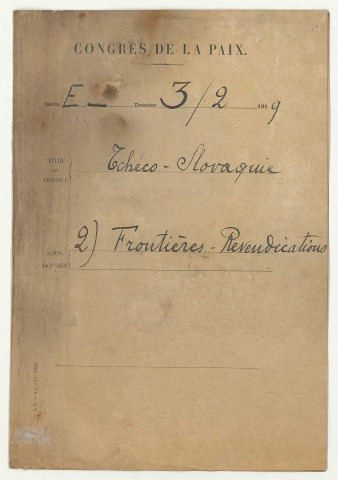 CONGRÈS DE LA PAIX.
Série E— Dossier 3/2 1919
TITRE DU DOSSIER Tchéco-Slovaquie
SOUS-DOSSIER 2) Frontières - Revendications